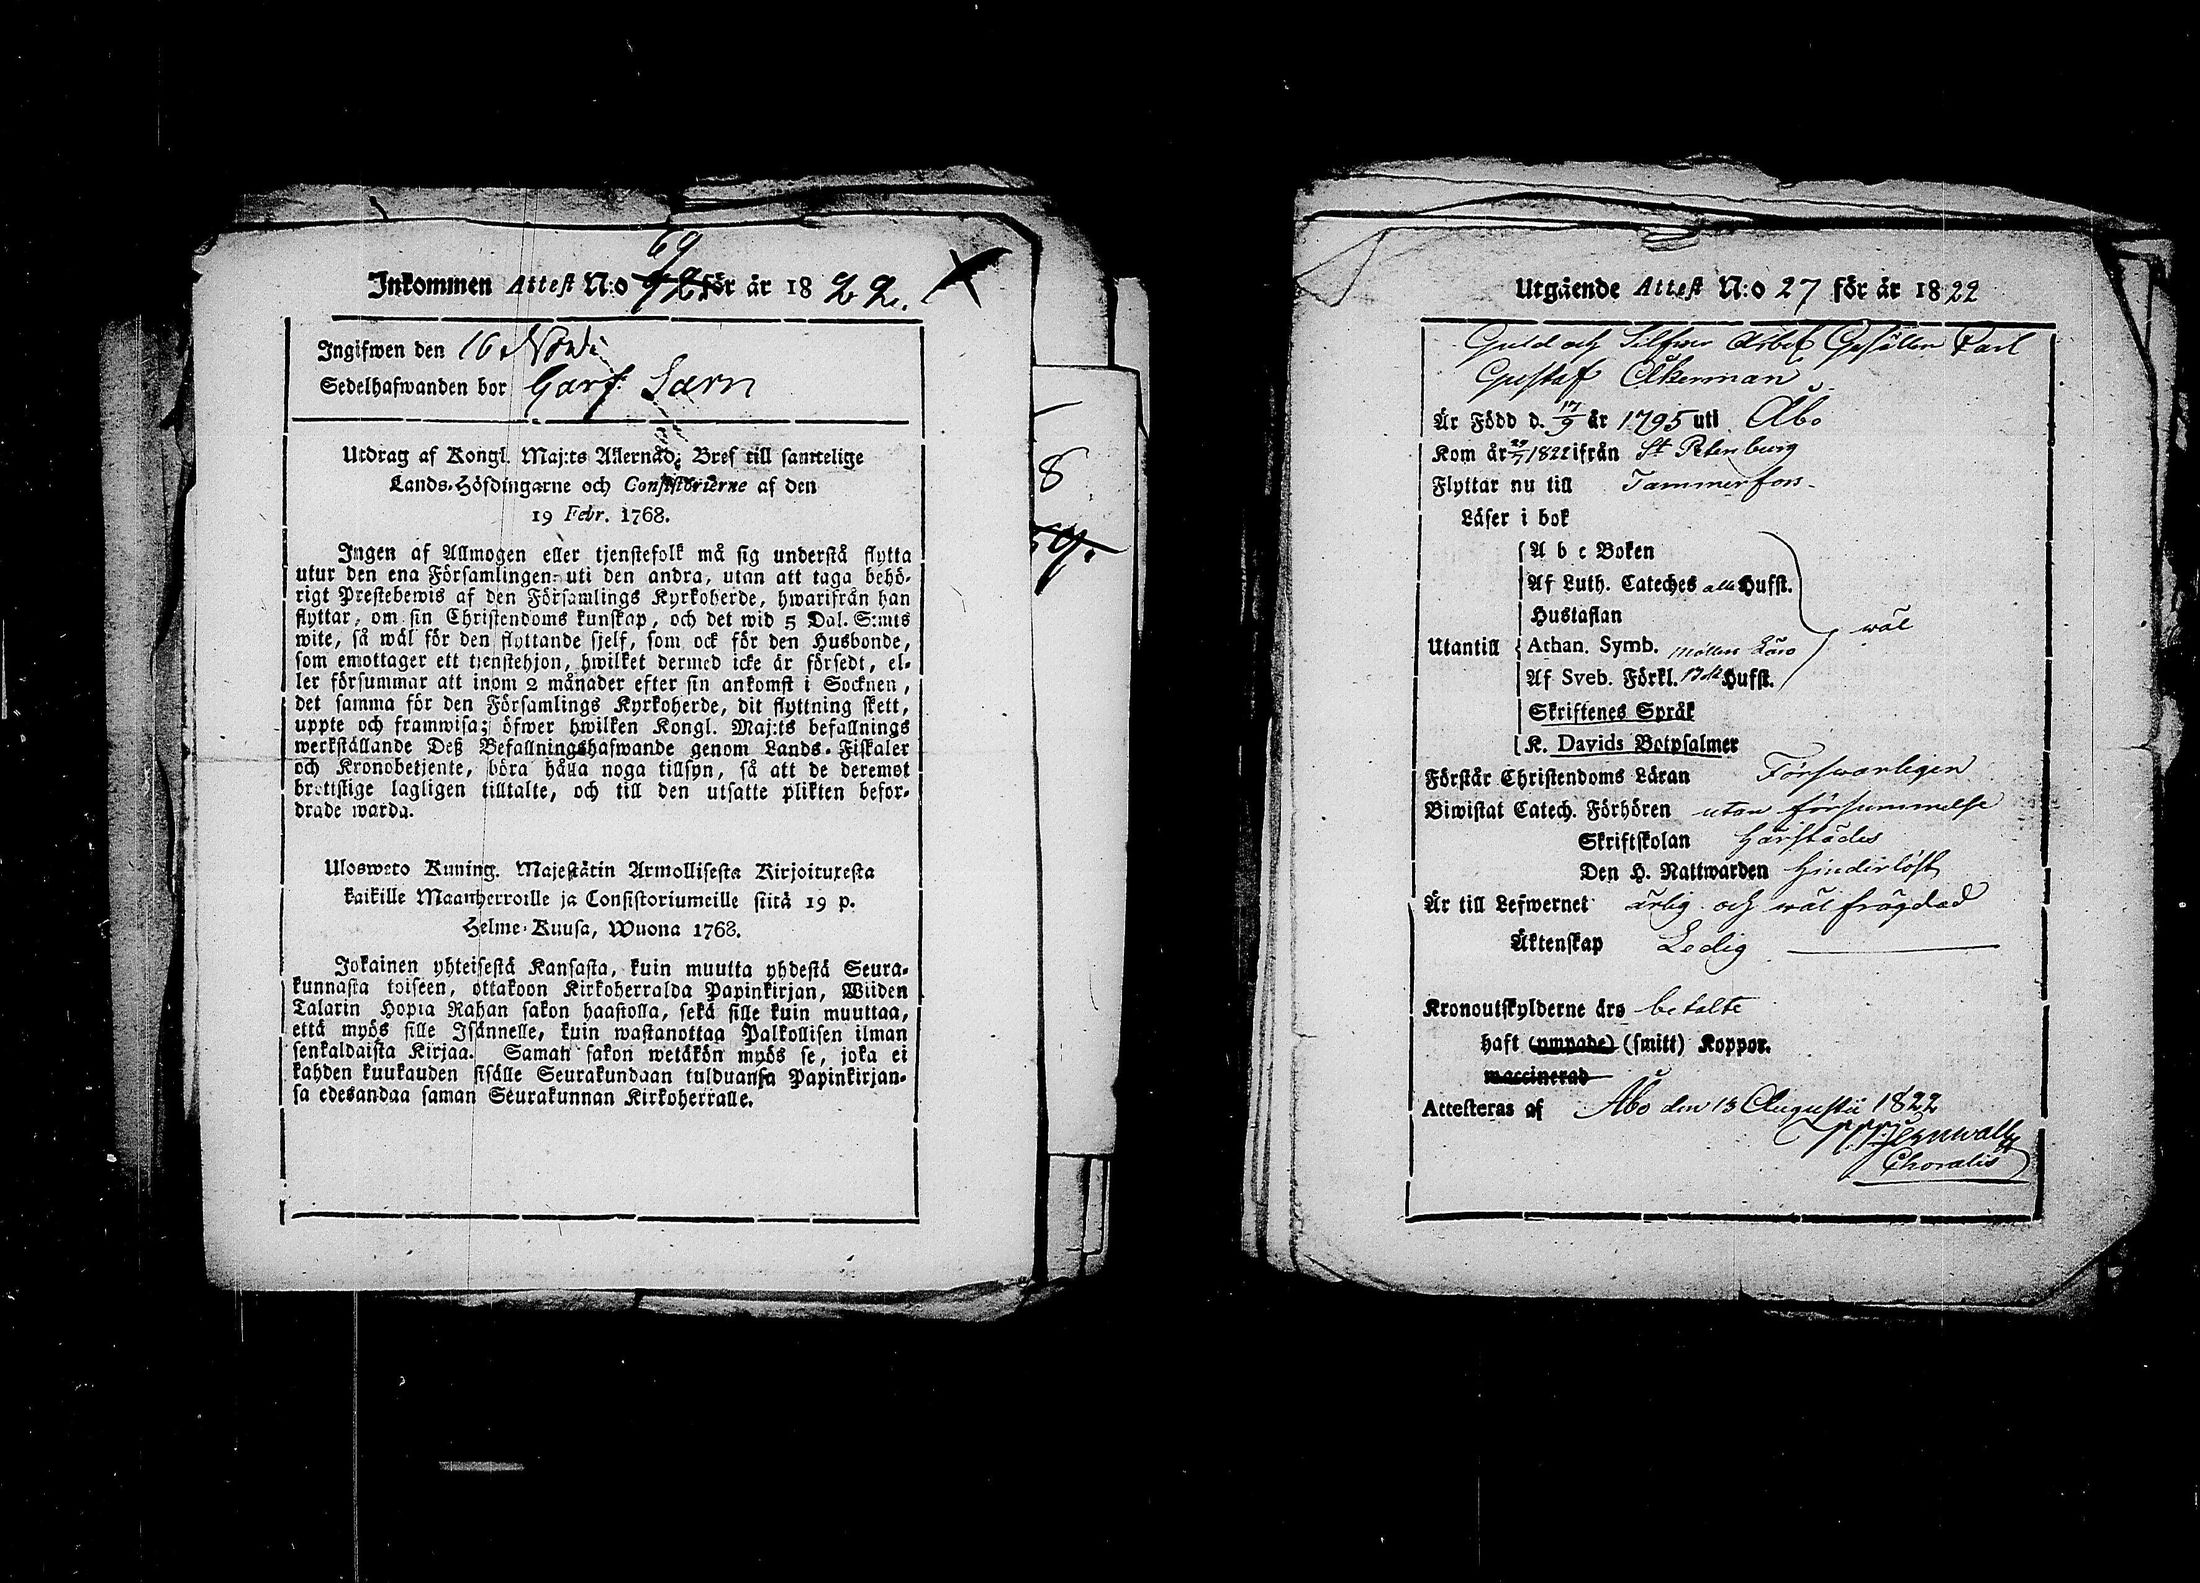 69
Inkommen Attest N:o för år 1822.
Ingifwen den 16 Novbr
Sedelhafwanden bor Garf. Lärn
Utdrag af Kongl. Maj:ts Allernåd. Bref till samtelige
Lands-Höfdingarne och Consistorierne af den
19 Febr. 1768.
Ingen af Allmogen eller tjenstefolk må sig understå flytta
utur den ena Församlingen uti den andra, utan att taga behö-
rigt Prestebewis af den Församlings Kyrkoherde, hwarifrån han
flyttar, om sin Christendoms kunskap, och det wid 5 Dal. S:mts
wite, så wäl för den flyttande sjelf, som ock för den Husbonde,
som emottager ett tjenstehjon, hwilket dermed icke är försedt, el-
ler försummar att inom 2 månader efter sin ankomst i Socknen,
det samma för den Församlings Kyrkoherde, dit flyttning skett,
uppte och framwisa; öfwer hwilken Kongl. Maj:ts befallnings
werkställande Deß Befallningshafwande genom Lands-Fiskaler
och Kronobetjente, böra hålla noga tillsyn, så att de deremot
brottslige lagligen tilltalte, och till den utsatte plikten befor-
drade warda.
Uloswеto Kuning. Majestätin Armollisesta Kirjoituxesta
kaikille Maanherroille ja Consistoriumeille siitä 19 p.
Helme-Kuusa, Wuona 1768.
Jokainen yhteisestä Kansasta, kuin muutta yhdestä Seura-
kunnasta toiseen, ottakoon Kirkoherralda Papinkirjan, Wiiden
Talarin Hopia Rahan sakon haastolla, sekä sille kuin muuttaa,
että myös sille Isännelle, kuin wastanottaa Palkollisen ilman
senkaldaista Kirjaa. Saman sakon wetäkön myös se, joka ei
kahden kuukauden sisälle Seurakundaan tulduansa Papinkirjan-
sa edesandaa saman Seurakunnan Kirkoherralle.
8
Utgående Attest N:o 27 för år 1822
Guld och Silfwer Arbet Gesällen Carl
Gustaf Åkerman
Är Född d. 17/9 år 1795 uti Åbo
Kom år 29/7 1822 ifrån St Petersburg
Flyttar nu till Tammerfors
Läser i bok
A b c Boken
Af Luth. Cateches alla Hufst.
Hustaflan
Utantill Athan. Symb. wäl
Af Sveb. Förkl. Hufst.
Skriftenes Språk
K. Davids Botpsalmer
Förstår Christendoms Läran Försvarligen
Biwistat Catech. Förhören utan försummelse
Skriftskolan härstädes
Den H. Nattwarden hinderlöst
Är till Lefwernet ärlig och wälfrägdad
Äktenskap Ledig
Kronoutskylderne äro betalte
haft (ympade) (smitt) Koppor.
waccinerad
Attesteras af Åbo den 13 Augustii 1822